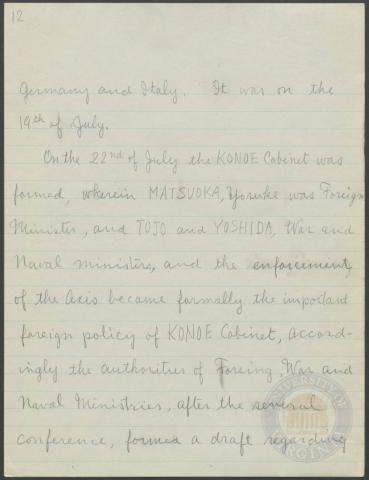 12
Germany and Italy. It was on the
19th of July.
On the 22nd of July the KONOE Cabinet was
formed, wherein MATSUOKA, Yosuke was Foreign
Minister, and TOJO and YOSHIDA, War and
Naval ministers, and the enforcement
of the Axis became formally the important
foreign policy of KONOE Cabinet, accord-
ingly the authorities of Foreing, War and
Naval Ministries, after the several
conference, formed a draft regarding
UNIVERSITY OF
VIRGINIA